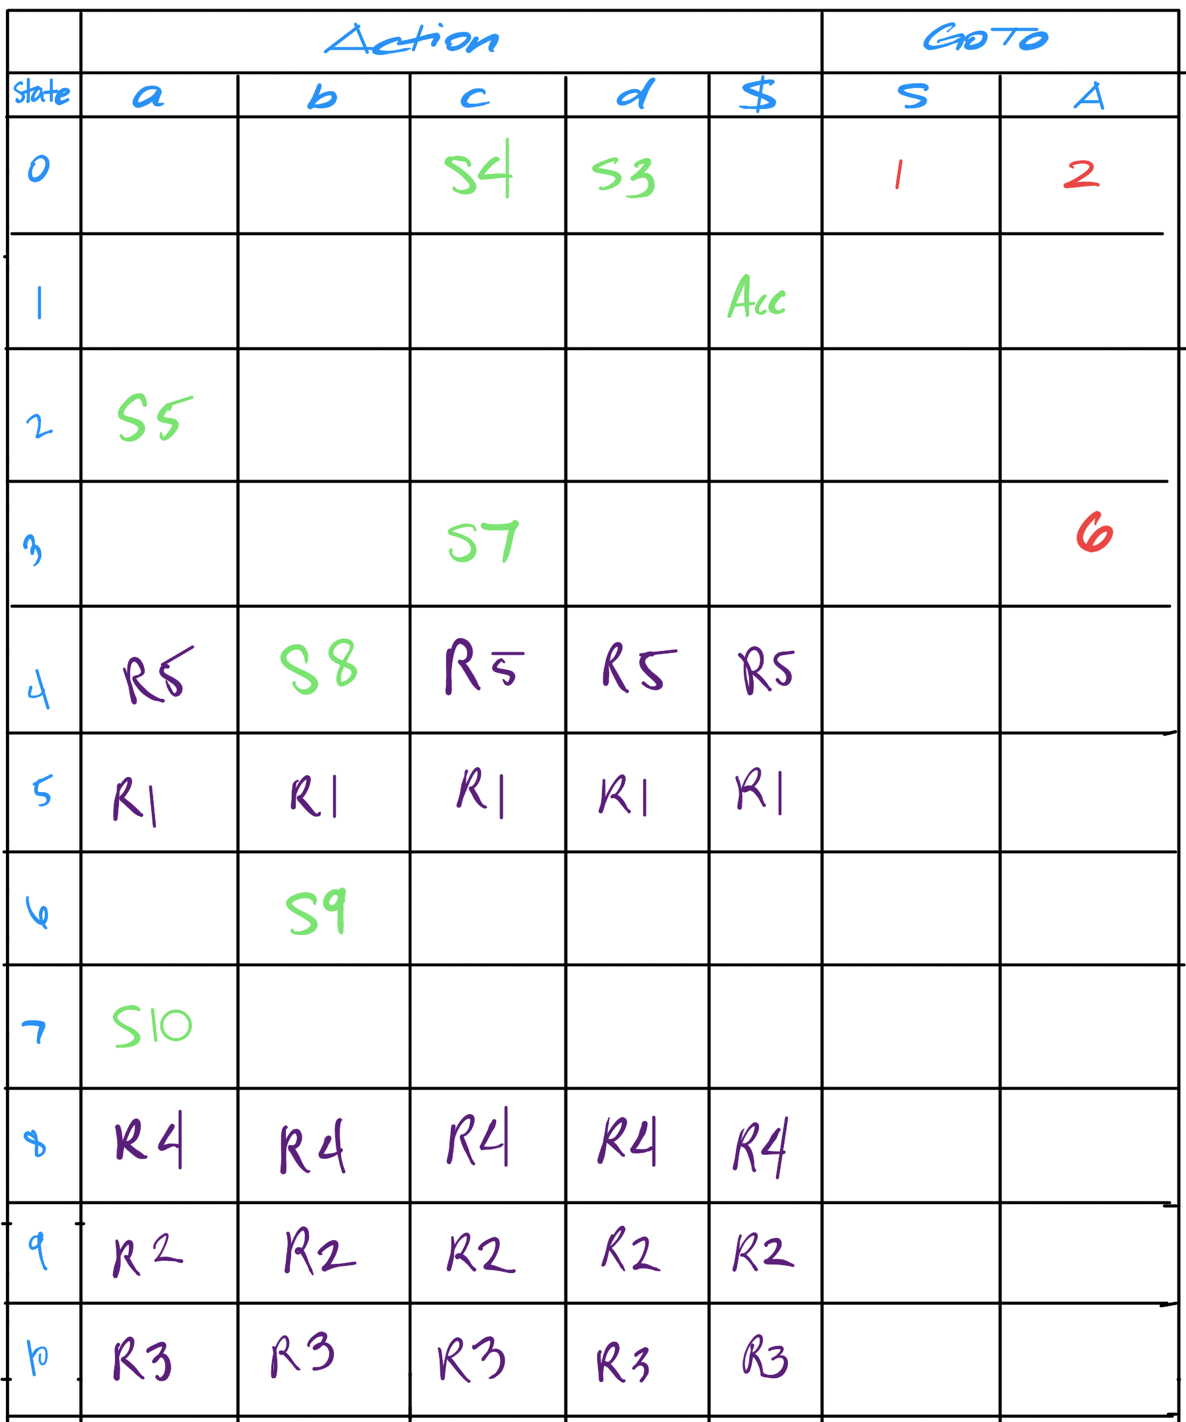 Action GOTO
State a b c d $ S A
0 S4 S3 1 2
1 Acc
2 S5
3 S7 6
4 R5 S8 R5 R5 R5
5 R1 R1 R1 R1 R1
6 S9
7 S10
8 R4 R4 R4 R4 R4
9 R2 R2 R2 R2 R2
10 R3 R3 R3 R3 R3